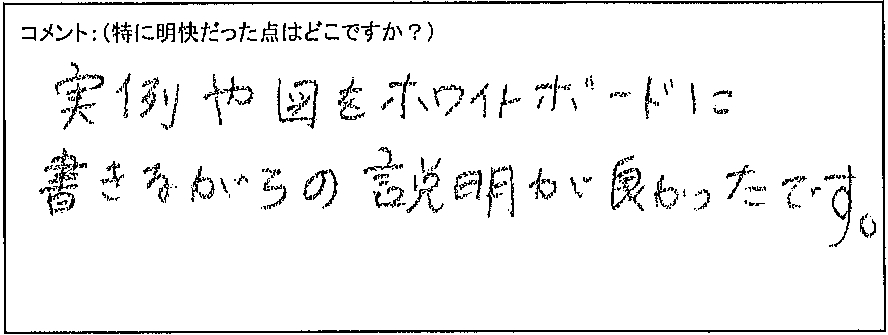 コメント：（特に明快だった点はどこですか？）
実例や図をホワイトボードに
書きながらの説明が良かったです。